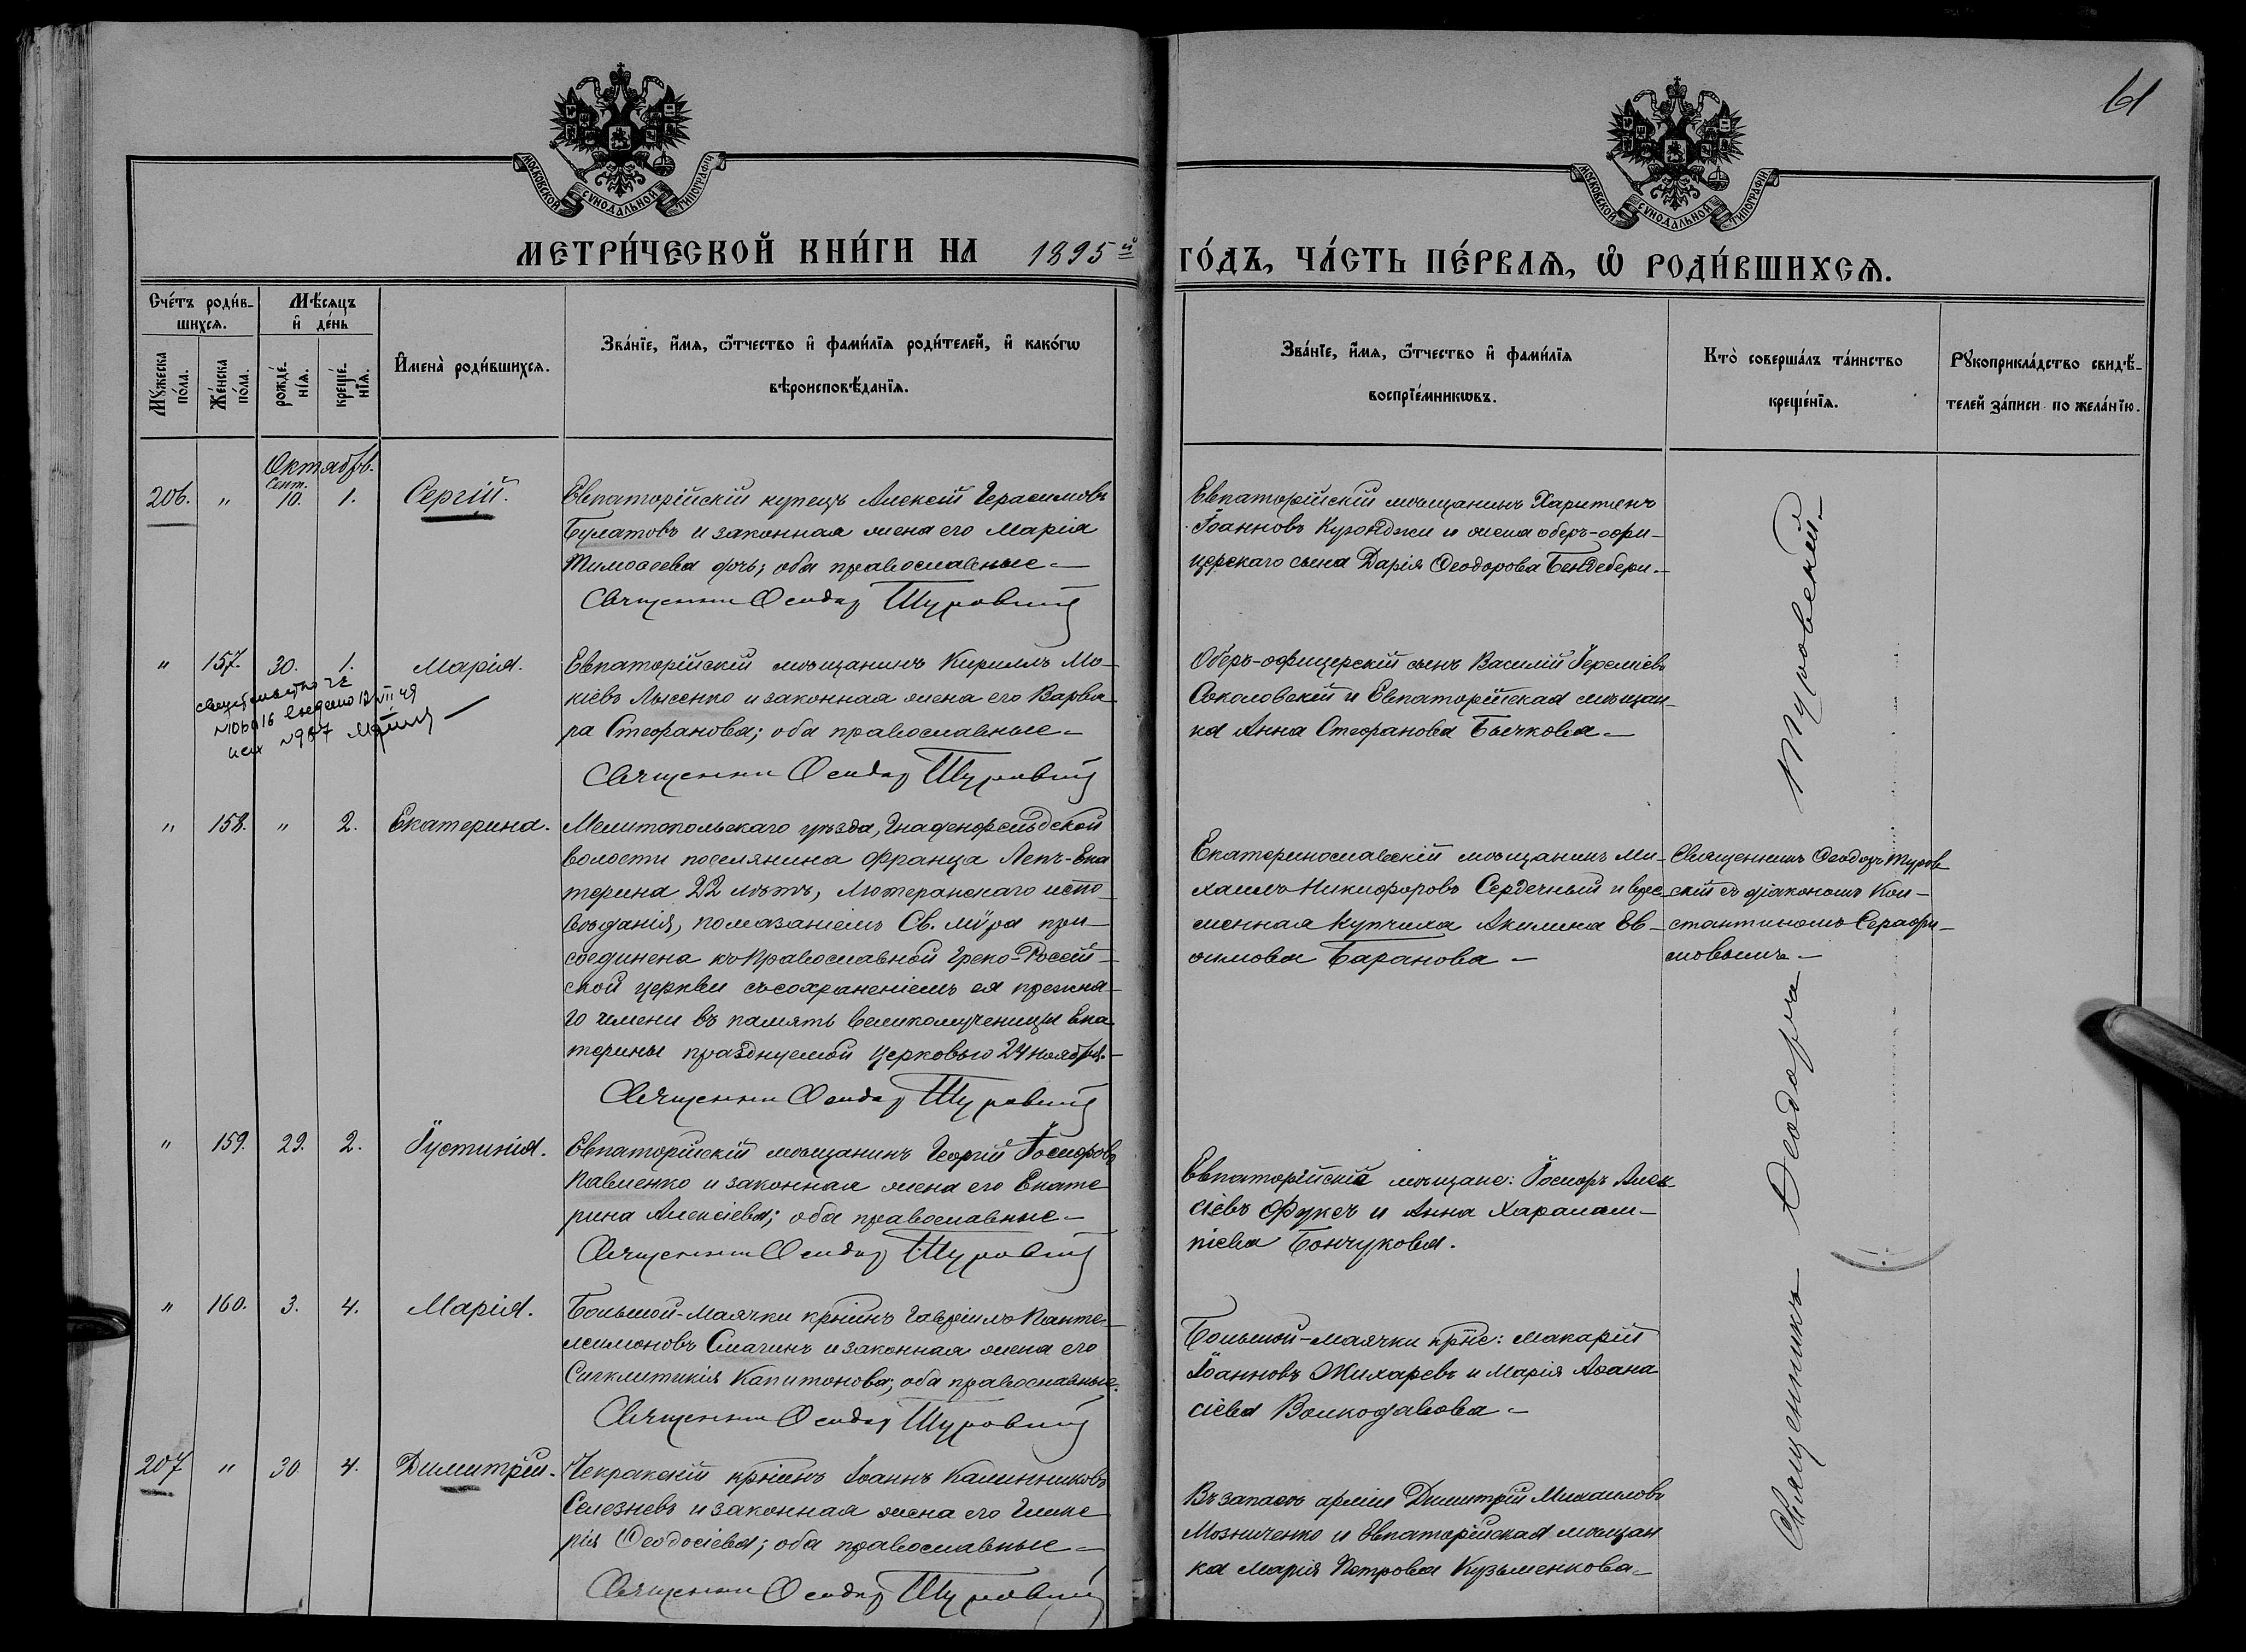 61
МОСКОВСКОЙ СУНОДАЛЬНОЙ ТИПОГРАФІИ
МОСКОВСКОЙ СУНОДАЛЬНОЙ ТИПОГРАФІИ
МЕТРИ́ЧЕСКОЙ КНИ́ГИ НА 1895й ГО́ДЪ, ЧА́СТЬ ПЕ́РВАѦ, Ѽ РОДИ́ВШИХСѦ.
Сче́тъ роди́в-
шихсѧ.
Мѣ́сѧцъ
и҆ де́нь
Мꙋ́жеска по́ла.
Же́нска по́ла.
рожде́-
нїѧ.
креще́-
нїѧ.
И҆мена̀ роди́вшихсѧ.
Зва́нїе, и҆́мѧ, ѻ҆́тчество и҆ фами́лїѧ роди́телей, и҆ како́гѡ
вѣроисповѣ́данїѧ.
Зва́нїе, и҆́мѧ, ѻ҆́тчество и҆ фами́лїѧ
воспрїе́мникѡвъ.
Кто̀ соверша́лъ та́инство
креще́нїѧ.
Рꙋкоприкла́дство свидѣ́-
телей за́писи по жела́нїю.
Октябрь.
Сент.
206. " 10. 1. Сергій.
Евпаторійскій купецъ Алексій Герасимовъ
Булатовъ и законная жена его Марія
Тимоѳеева дочь; оба православные-
Священник Ѳеодор Туровский
Евпаторійскій мѣщанинъ Харитонъ
Іоанновъ Куюнджи и жена оберъ-офи-
церскаго сына Дарія Ѳеодорова Бендебери.-
" 157. 30. 1. Марія.
Евпаторійскій мѣщанинъ Кириллъ Мо-
кіевъ Лысенко и законная жена его Варва-
ра Стефанова; оба православные-
Священник Ѳеодор Туровский
Оберъ-офицерскій сынъ Василій Іереміевъ
Соколовскій и Евпаторійская мѣщан-
ка Анна Стефанова Бычкова-
" 158. " 2. Екатерина.
Мелитопольскаго уѣзда, Гнаденфельдской
волости поселянина Франца Лепъ-Ека
терина 22 лѣтъ, Лютеранскаго испо-
вѣданія, помазаніемъ Св. мѵра при-
соединена къ Православной Греко-Россій-
ской церкви съ сохраненіемъ ея прежня-
го имени въ память великомученицы Ека
терины празднуемой Церковью 24 ноября.-
Священник Ѳеодор Туровский
Екатеринославскій мѣщанинъ Ми-
хаилъ Никифоровъ Сердечный и вре-
менная купчиха Акилина Ев-
фимова Баранова-
Священникъ Ѳеодоръ Туров-
скій съ діакономъ Кон-
стантиномъ Серафи-
мовымъ-
" 159. 29. 2. Іустинія.
Евпаторійскій мѣщанинъ Георгій Іосифовъ
Павленко и законная жена его Екате
рина Алексіева; оба православные-
Священник Ѳеодор Туровский
Евпаторійскіе мѣщане: Іосифъ Алек
сіевъ Фуксъ и Анна Харалам-
піева Бончукова.
" 160. 3. 4. Марія.
Большой-Маячки кр҃нинъ Гавріилъ Панте-
леимоновъ Смагинъ и законная жена его
Сигклитикія Капитонова; оба православные.
Священник Ѳеодор Туровский
Большой-Маячки кр҃не: Макарій
Іоанновъ Жихаревъ и Марія Аѳана
сіева Волкодавова-
207 " 30 4. Димитрій.
Чекракскій кр҃нинъ Іоаннъ Калинниковъ
Селезневъ и законная жена его Глике
рія Ѳеодосіева; оба православные-
Священник Ѳеодор Туровский
Въ запасѣ арміи Димитрій Михаиловъ
Мозниченко и Евпаторійская мѣщан
ка Марія Петрова Кузьменкова-
Священникъ Ѳеодоръ Туровскій-